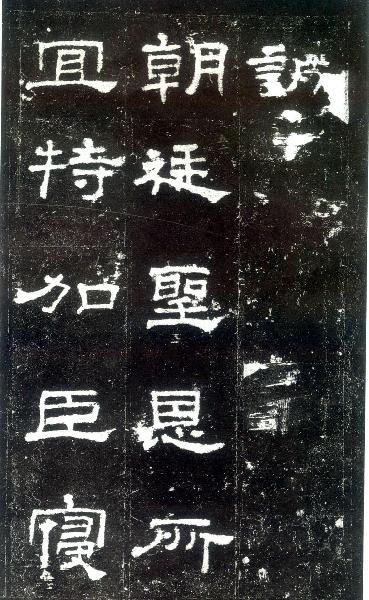 誠
朝廷聖恩所
宜特加臣寢